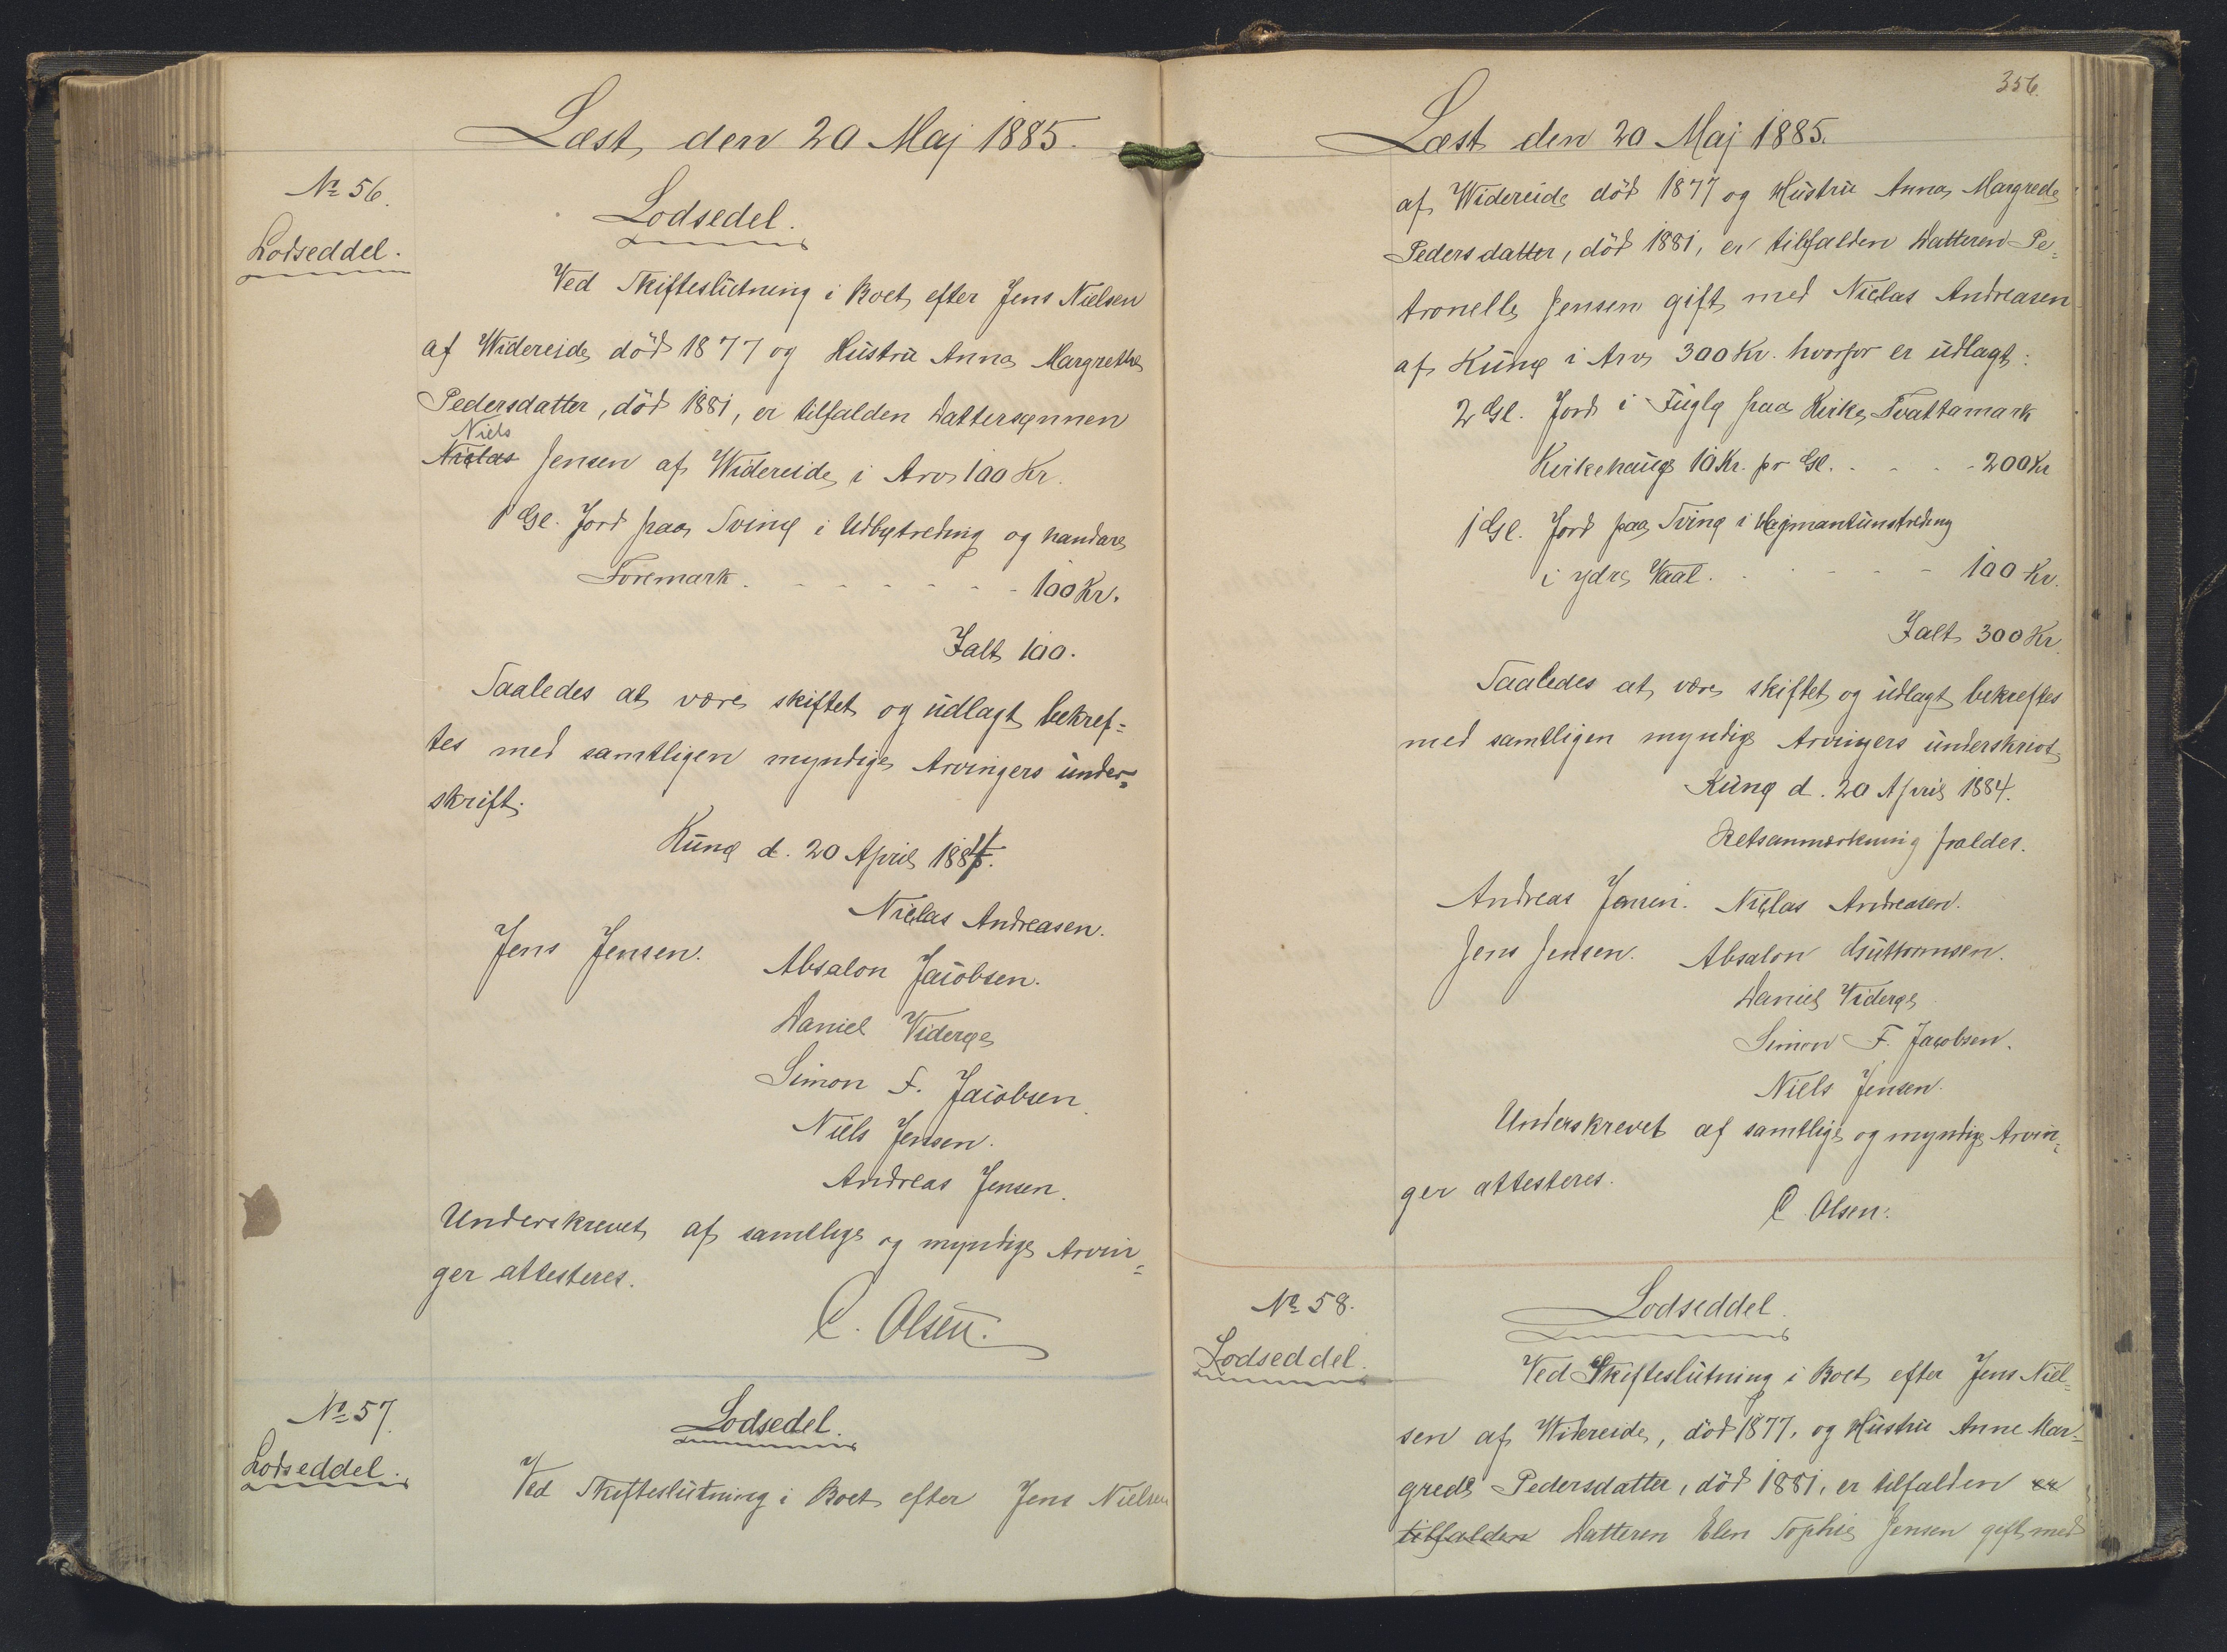 Læst den 20 Maj 1885.
No 56.
Lodseddel.
Lodsedel.
Ved Skifteslutning i Boet efter Jens Nielsen
af Widereide død 1877 og Hustru Anna Margrethe
Pedersdatter, død 1881, er tilfalden Dattersønnen
Niels
Niclas Jensen af Widereide i Arv 100 Kr.
1 Gl. Jord paa Svinø i Udbøtreding og handare
Foremark . . . . . . 100 Kr.
Ialt 100.
Saaledes at være skiftet og udlagt bekref=
tes med samtligen myndige Arvingers under=
skrift.
Kunø d. 20 April 1884.
Niclas Andreasen.
Jens Jensen.
Absalon Jacobsen.
Daniel Viderøe
Simon F. Jacobsen.
Niels Jensen.
Andreas Jensen.
Underskrevet af samtlige og myndige Arvin=
ger attesteres.
C. Olsen.
No 57.
Lodseddel.
Lodsedel.
Ved Skifteslutning i Boet efter Jens Nielsen
356.
Læst den 20 Maj 1885.
af Widereide død 1877 og Hustru Anna Margrede
Pedersdatter, død 1881, er tilfalden Datteren Pe=
tronelle Jensen gift med Niclas Andreasen
af Kunø i Arv 300 Kr. hvorfor er udlagt:
2 Gl. Jord i Fuglø paa Kirke, Tvattamark
Kirkehauge 10 Kr. pr Gl. . . . . 200 Kr
1 Gl. Jord paa Svinø i
i ydre Vaal . . . . . 100 Kr.
Ialt 300 Kr.
Saaledes at være skiftet og udlagt bekreftes
med samtligen myndige Arvingers underskrivt
Kunø d. 20 April 1884.
Retsanmærkning fraldes.
Andreas Jensen. Niclas Andreasen.
Jens Jensen. Absalon Guttormsen.
Daniel Viderøe
Simon F. Jacobsen.
Niels Jensen.
Underskrevet af samtlige og myndige Arvin=
ger attesteres.
C Olsen.
No 58.
Lodseddel.
Lodseddel.
Ved Skifteslutning i Boet efter Jens Niel=
sen af Widereide, død 1877, og Hustru Anne Mar=
grede Pedersdatter, død 1881, er tilfalden er
tilfalden Datteren Elen Sophie Jensen gift med